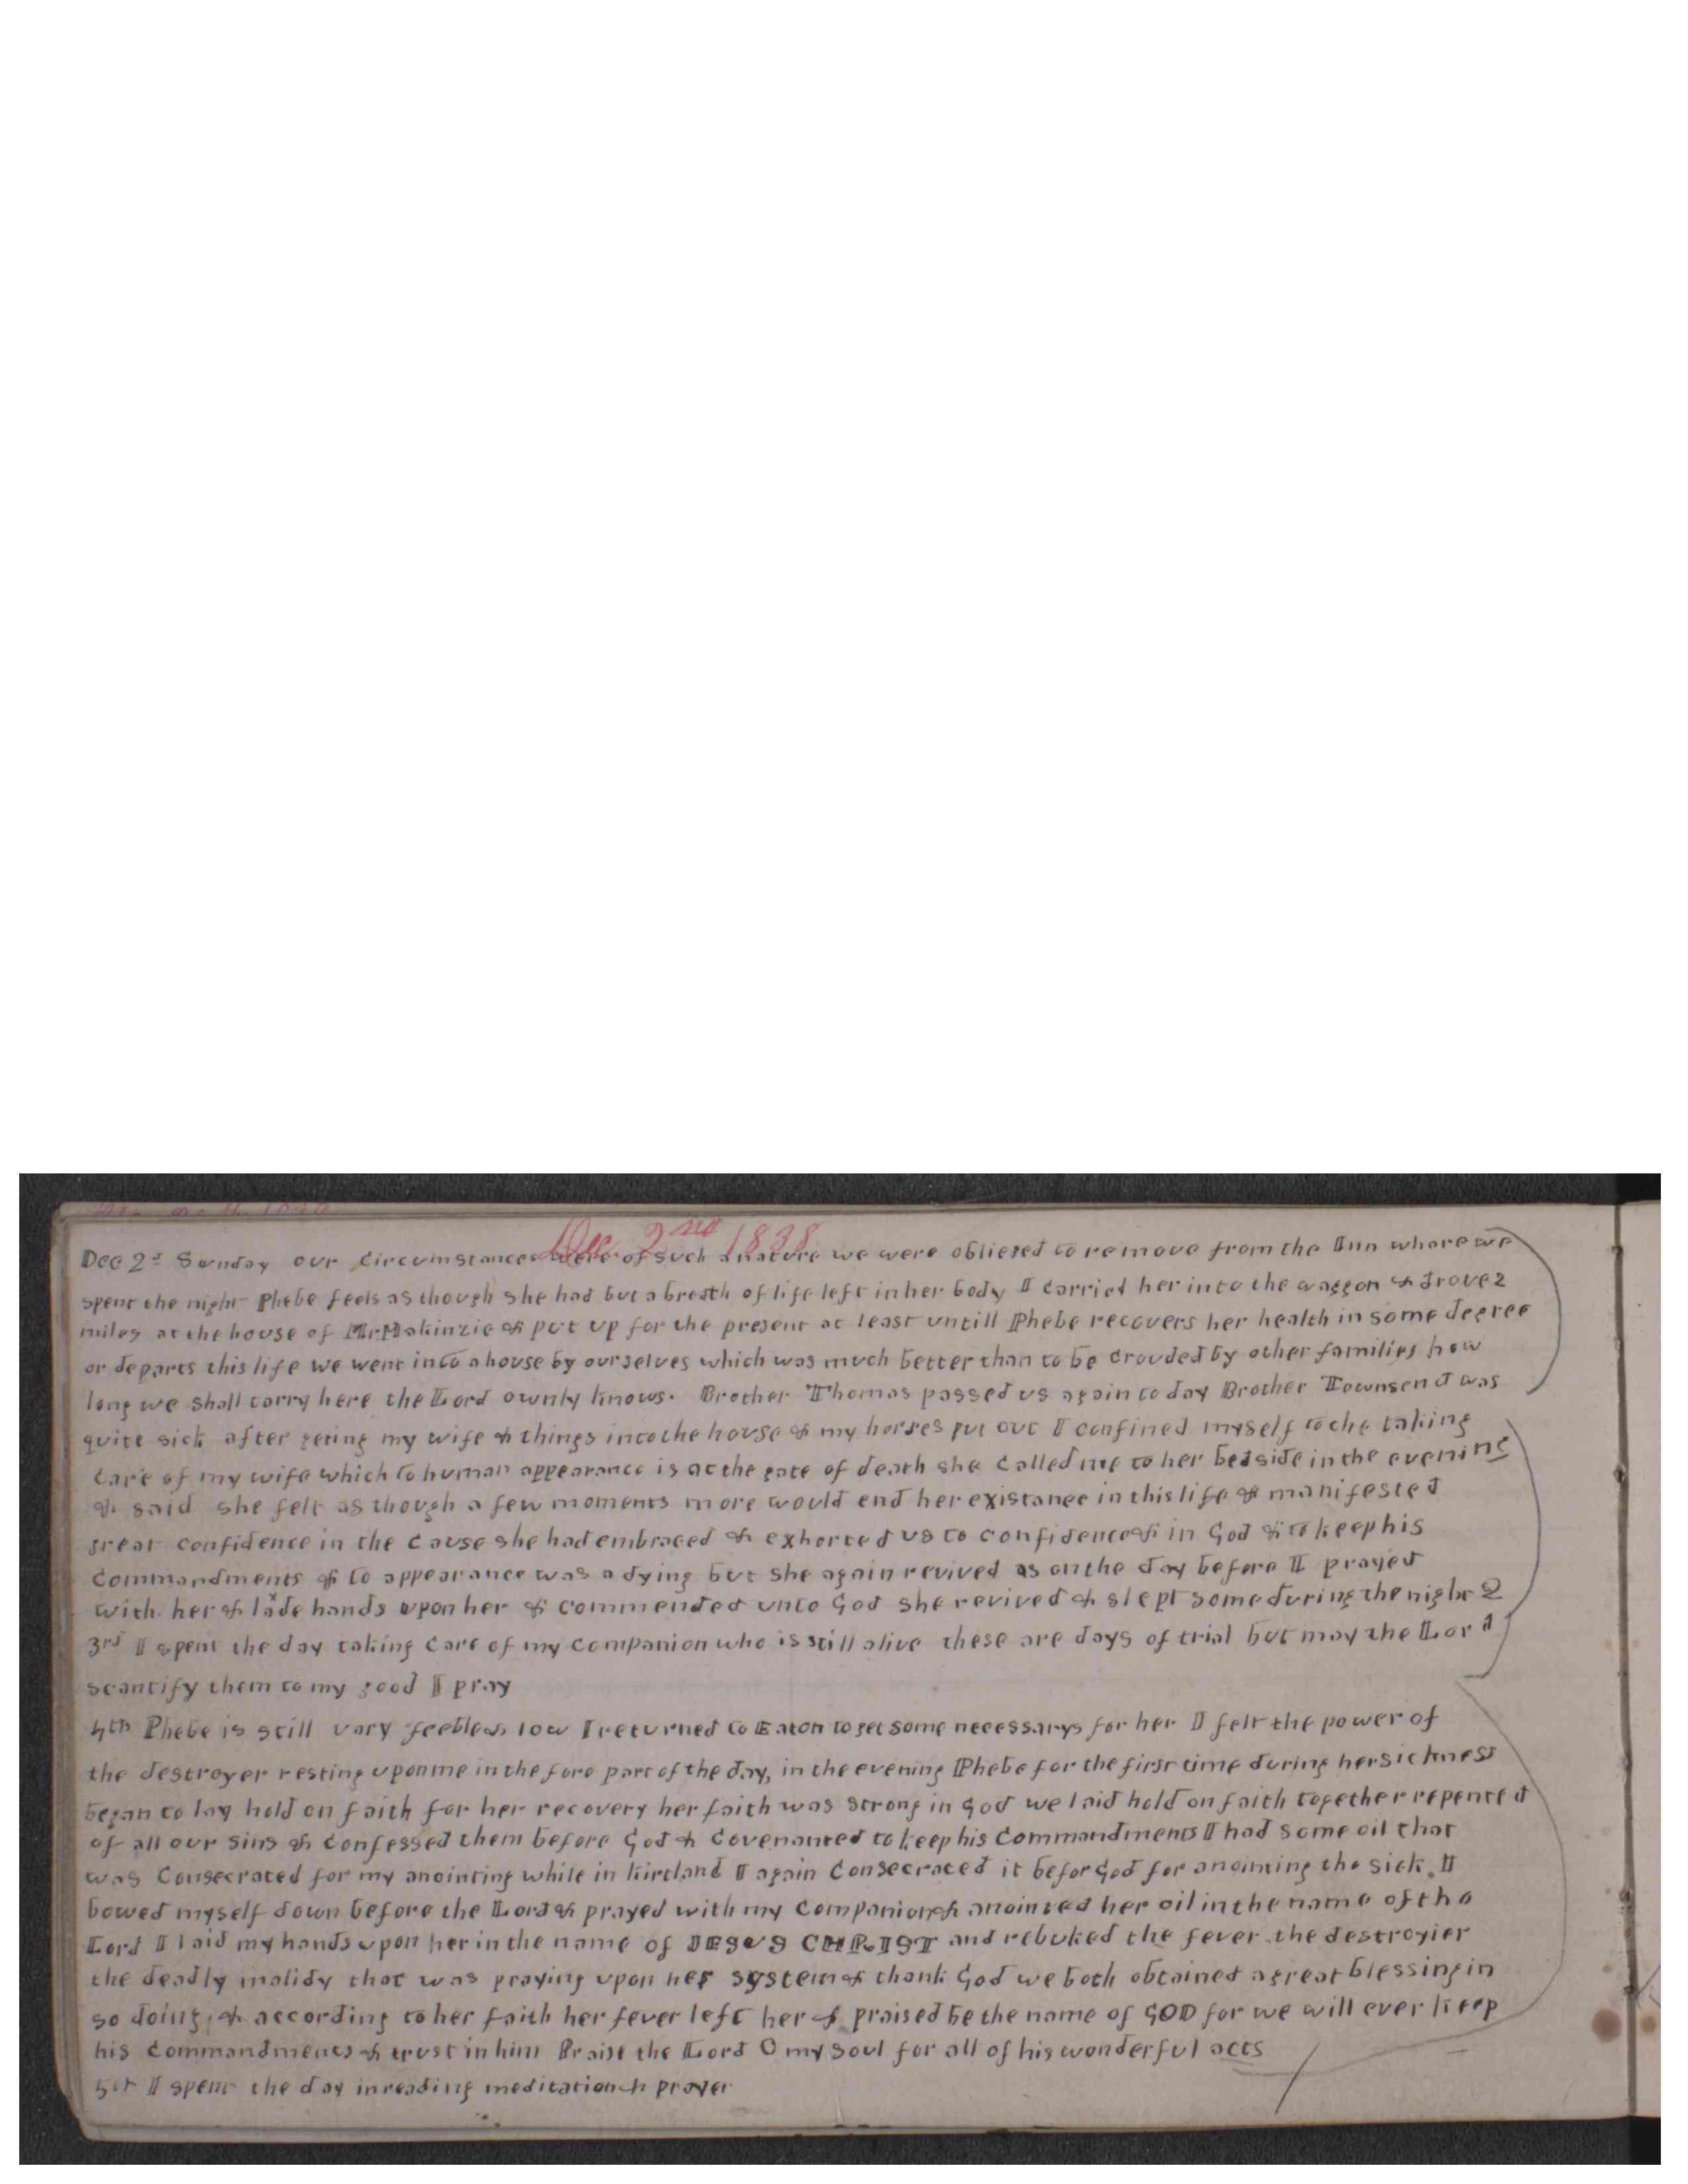 Dec. 2nd 1838
Dec 2d Sunday our Circumstances were of such a nature we were obliezed to remove from the Inn whare we
spent the night Phebe feels as though she had but a breath of life left in her body I carried her into the waggon & drove 2
miles at the house of Mr Makinzie & put up for the present at least untill Phebe recovers her health in some degree
or departs this life we went into a house by ourselves which was much better than to be crouded by other families how
long we shall tarry here the Lord ownly knows. Brother Thomas passed us again to day Brother Townsend was
quite sick after geting my wife & things into the house & my horses put out I confined myself to the taking
Care of my wife which to human appearance is at the gate of death she Called me to her bedside in the evening
& said she felt as though a few moments more would end her existance in this life & manifested
great confidence in the Cause she had embraced & exhorted us to confidence & in God & to keep his
Commandments & to appearance was a dying but she again revived as on the day before I prayed
with her & lade hands upon her & commended unto God she revived & slept some during the night
3rd I spent the day taking Care of my companion who is still alive these are days of trial but may the Lord
scantify them to my good I pray
4th Phebe is still vary feeble & low I returned to Eaton to get some necessarys for her I felt the power of
the destroyer resting upon me in the fore part of the day, in the evening Phebe for the first time during her sickness
began to lay hold on faith for her recovery her faith was strong in God we laid hold on faith together repented
of all our sins & Confessed them before God & Covenanted to keep his Commandments I had some oil that
was Consecrated for my anointing while in Kirtland I again Consecrated it befor God for anointing the sick. I
bowed myself down before the Lord & prayed with my Companion & anointed her oil in the name of the
Lord I laid my hands upon her in the name of JESUS CHRIST and rebuked the fever the destroyier
the deadly malidy that was praying upon her system & thank God we both obtained a great blessing in
so doing, & according to her faith her fever left her & praised be the name of GOD for we will ever keep
his Commandments & trust in him Praise the Lord O my soul for all of his wonderful acts
5th I spent the day in reading meditation & prayer